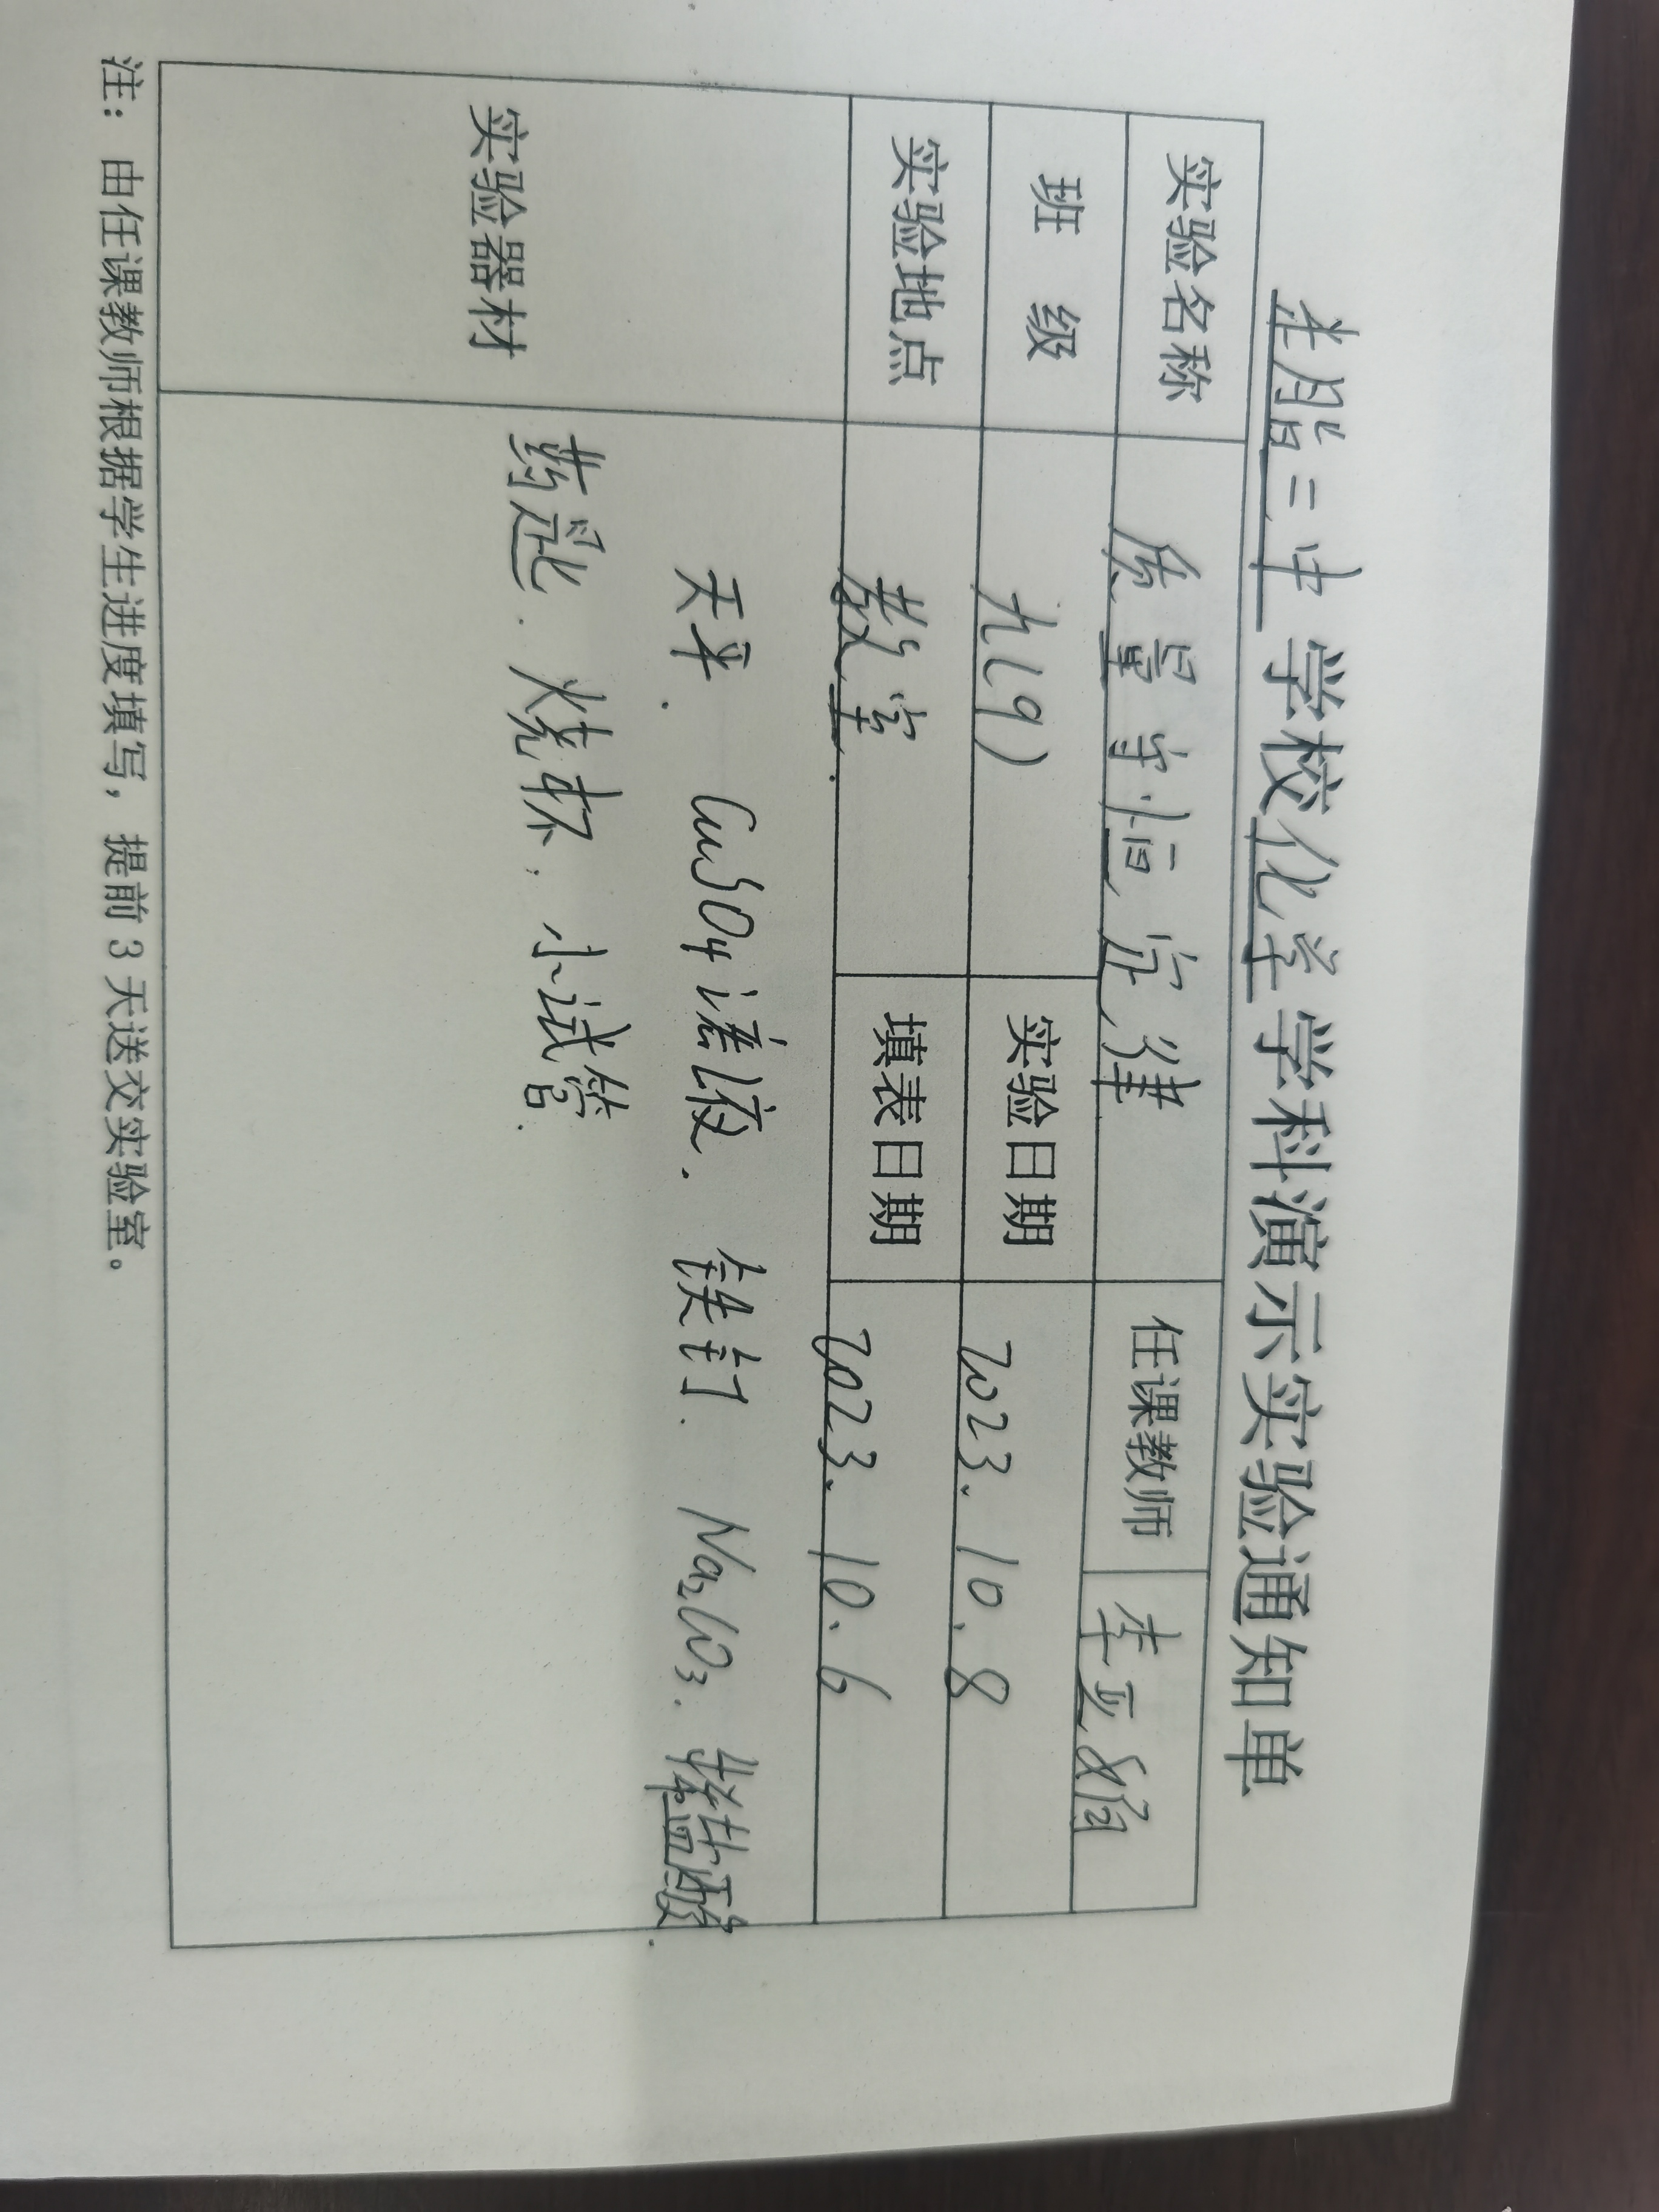 二中学校化学学科演示实验通知单
实验名称 质量守恒定律 任课教师 李亚
班 级 九(9) 实验日期 2023.10.8
实验地点 教室. 填表日期 2023.10.6
实验器材 天平. CuSO4溶液. 铁钉. Na2CO3. 稀盐酸.
药匙. 烧杯. 小试管.
注：由任课教师根据学生进度填写，提前3天送交实验室。